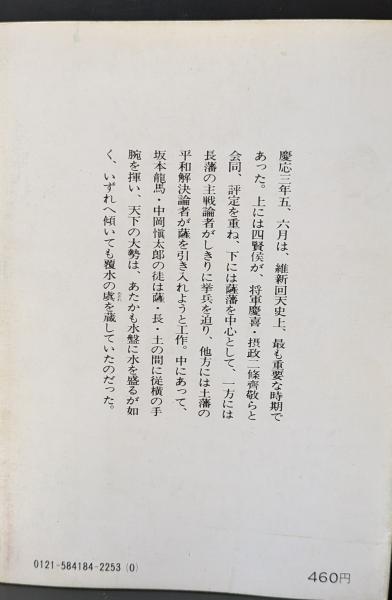 慶応三年五、六月は、維新回天史上、最も重要な時期で
あった。上には四賢侯が、将軍慶喜・摂政二條齊敬らと
会同、評定を重ね、下には薩藩を中心として、一方には
長藩の主戦論者がしきりに挙兵を迫り、他方には土藩の
平和解決論者が薩を引き入れようと工作。中にあって、
坂本龍馬・中岡愼太郎の徒は薩・長・土の間に従横の手
腕を揮い、天下の大勢は、あたかも水盤に水を盛るが如
く、いずれへ傾いても覆水の虞を蔵していたのだった。
0121-584184-2253 (0)
460円